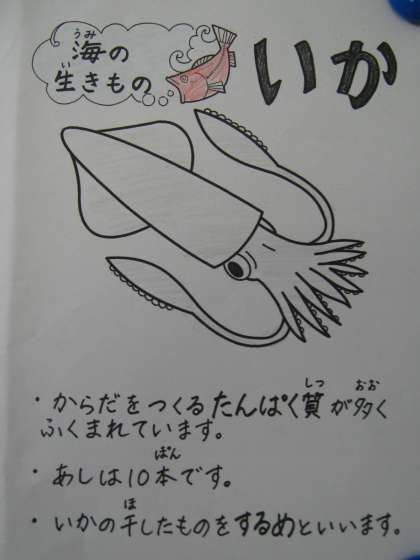 海の
うみ
生きもの
い
いか
・からだをつくるたんぱく質が多く
しつ
おお
ふくまれています。
・あしは10本です。
ぽん
・いかの干したものをするめといいます。
ほ